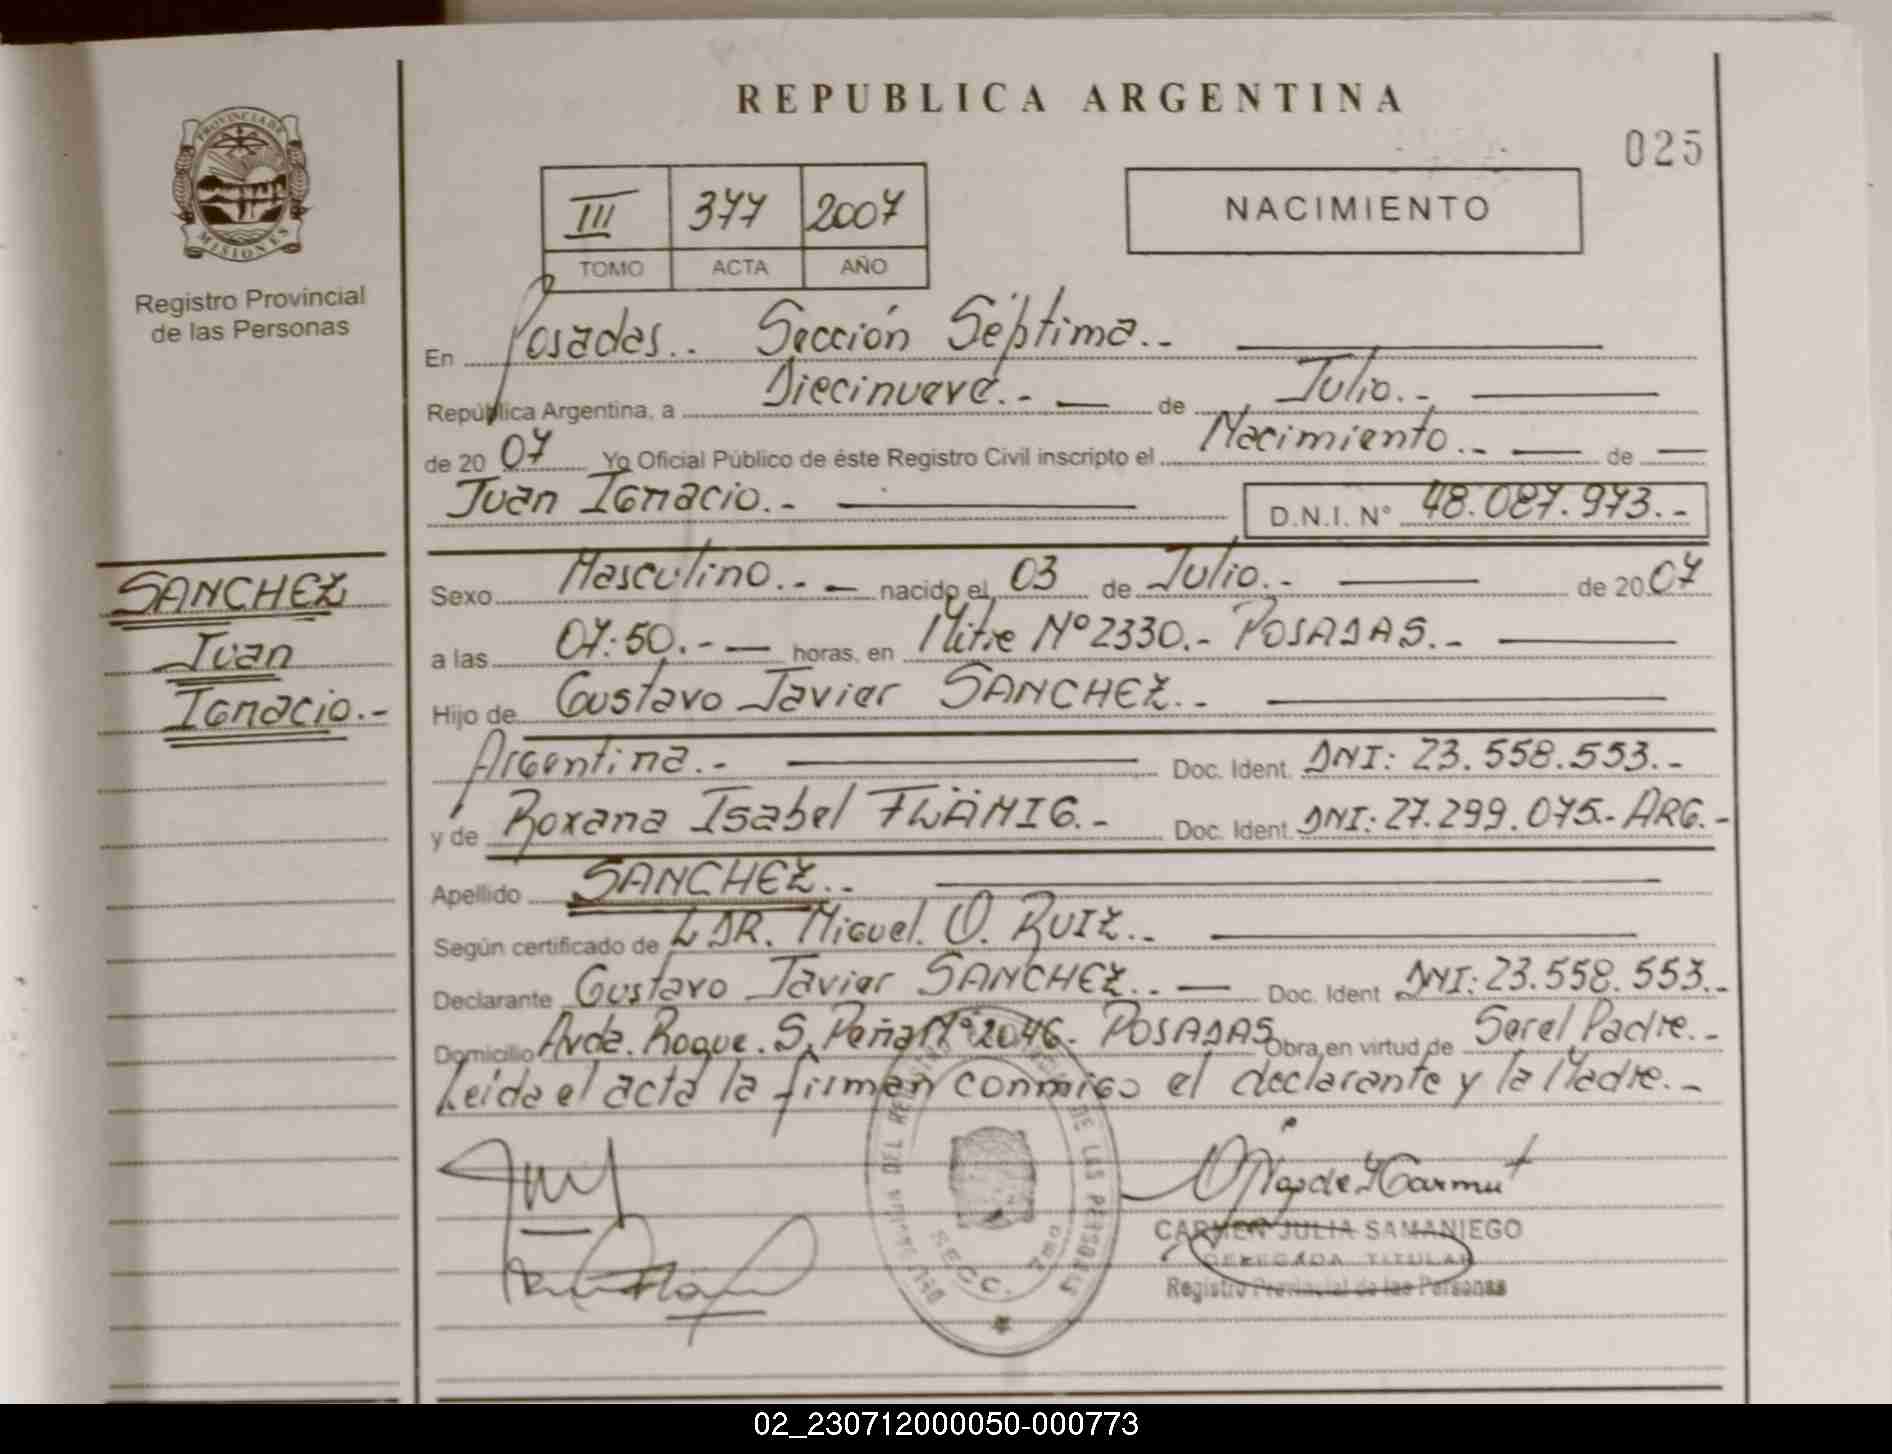 REPUBLICA ARGENTINA
025
PROVINCIA DE
MISIONES
Registro Provincial
de las Personas
III 377 2007
TOMO ACTA AÑO
NACIMIENTO
En Posadas.. Sección Séptima..-
República Argentina, a Diecinueve.- de Julio.-
de 20 07 Yo Oficial Público de éste Registro Civil inscripto el Nacimiento.- de
Juan Ignacio.- D.N.I. N° 48.087.973.-
SANCHEZ
Juan
Ignacio.-
Sexo Masculino.- nacido el 03 de Julio.- de 20 07
a las 07:50.- horas, en Mitre Nº 2330.- POSADAS.-
Hijo de Gustavo Javier SANCHEZ.-
Argentina.- Doc. Ident. DNI: 23.558.553.-
y de Roxana Isabel FLÄMIG.- Doc. Ident. DNI: 27.299.075.- ARG.-
Apellido SANCHEZ.-
Según certificado de DR. Miguel. O. RUIZ.-
Declarante Gustavo Javier SANCHEZ.- Doc. Ident DNI: 23.558.553.-
Domicilio Avda. Roque. S. Peña Nº 2046. POSADAS Obra en virtud de Ser el Padre.-
Leida el acta la firman conmigo el declarante y la Madre.-
DEL REGISTRO DE LAS PERSONAS
SECC. 7ma
CARMEN JULIA SAMANIEGO
DELEGADA TITULAR
Registro Provincial de las Personas
02_230712000050-000773